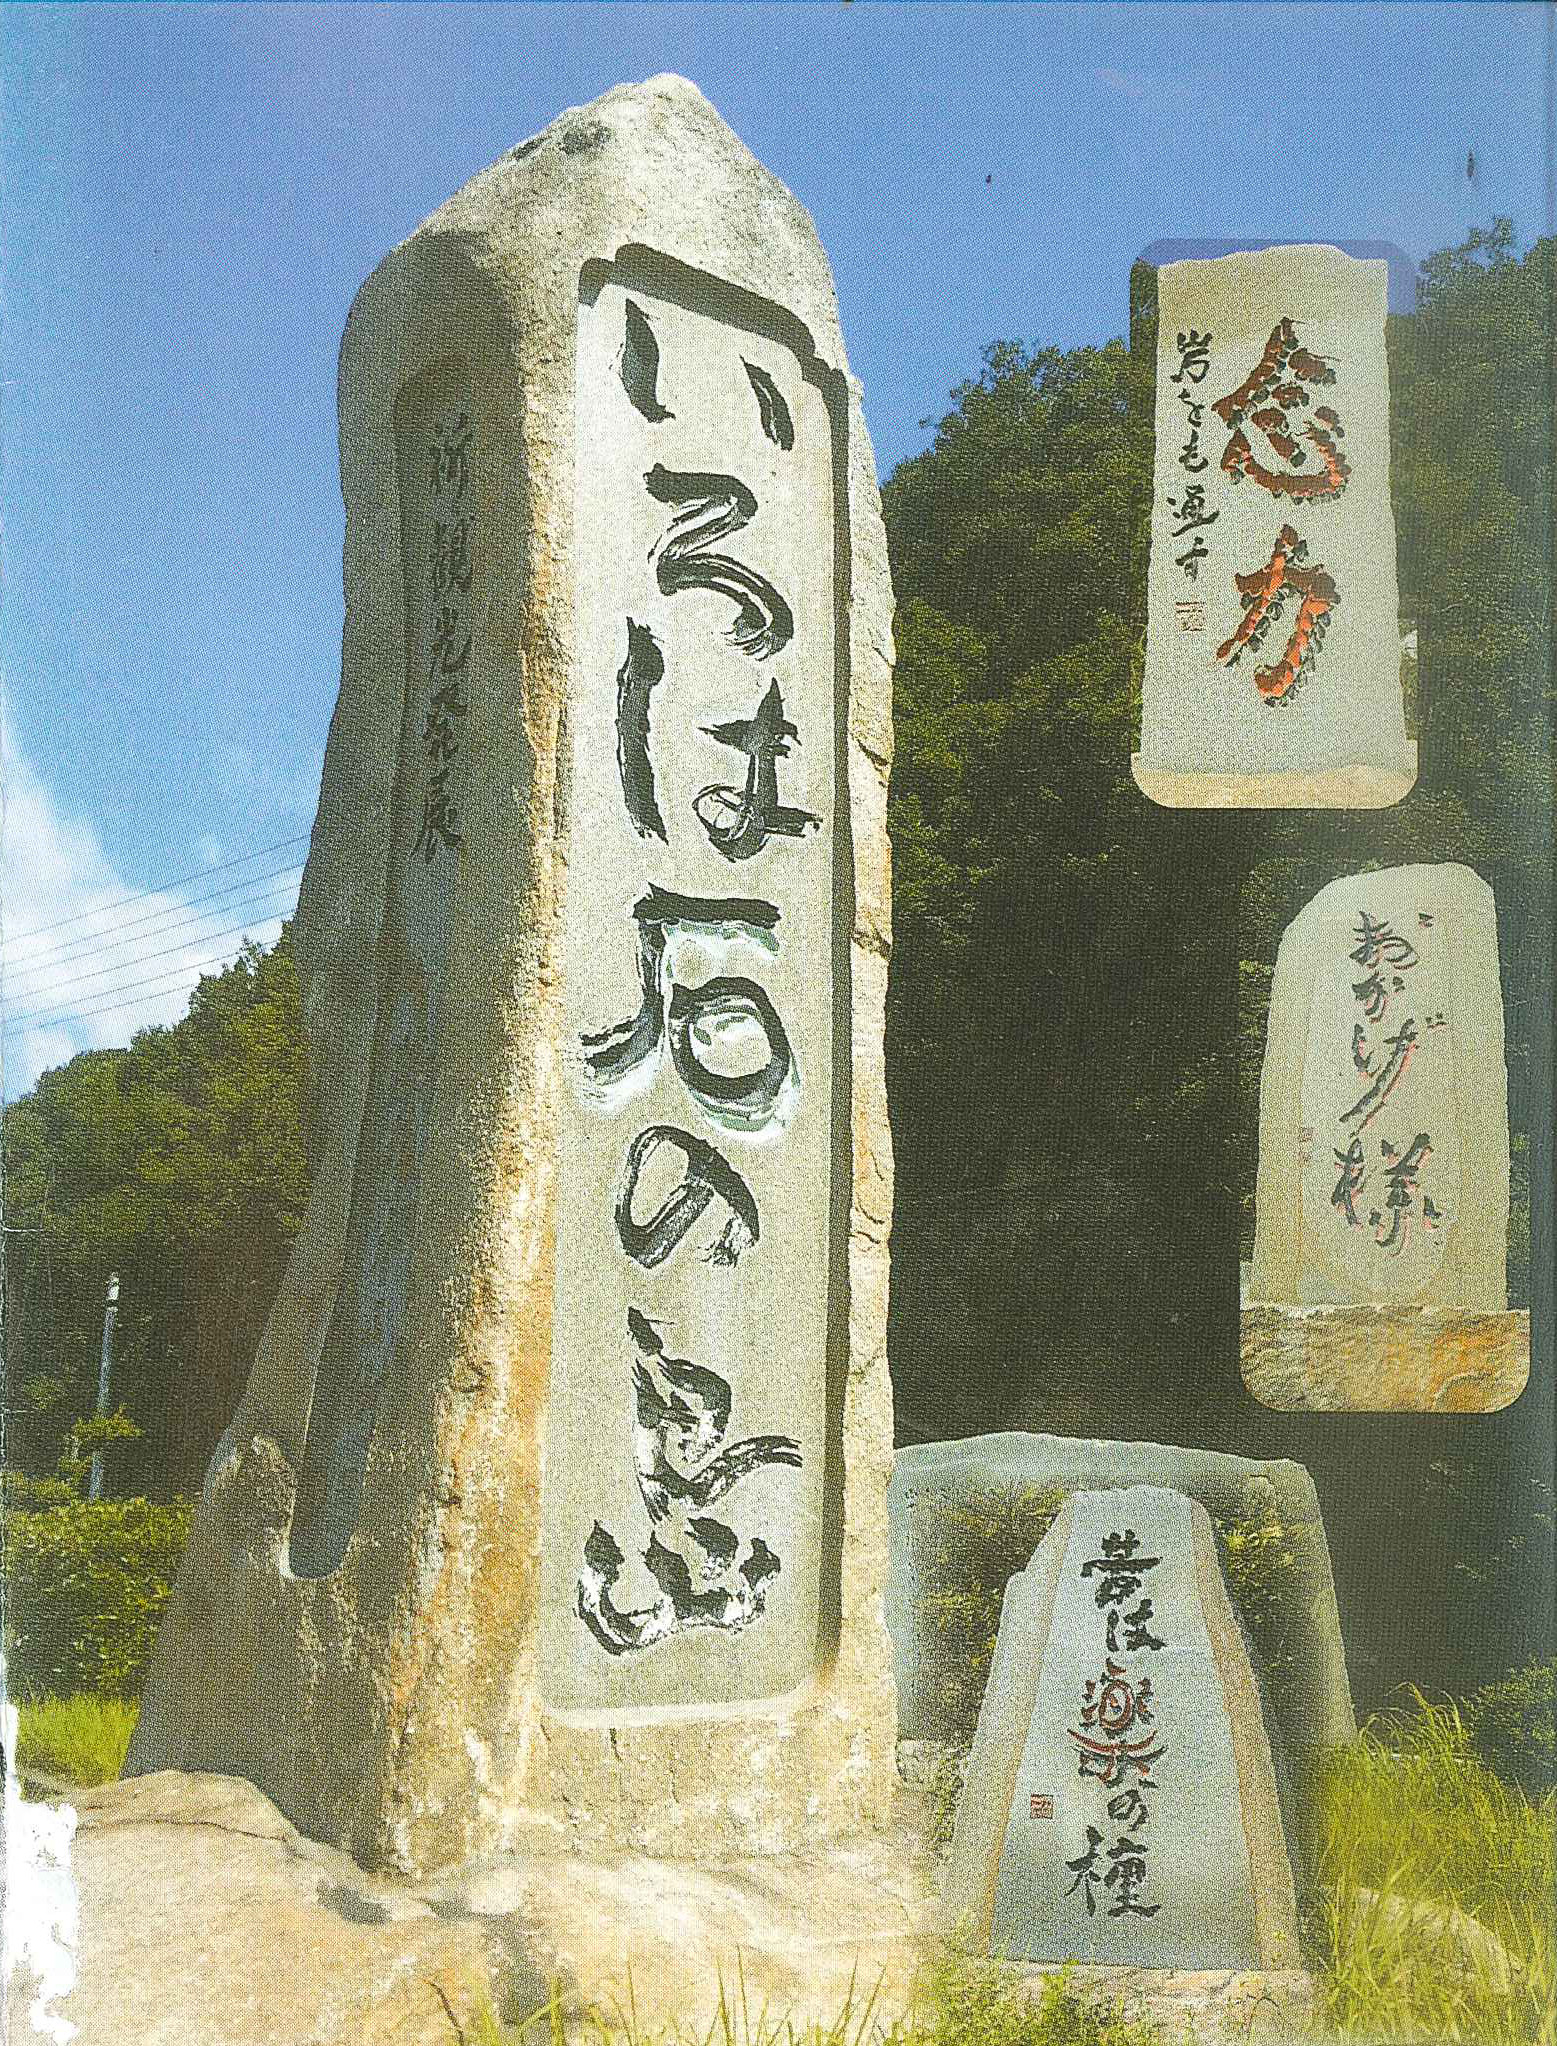 いろは石の
祈観光発展
念力
岩をも通す
おかげ様
苦は楽の種